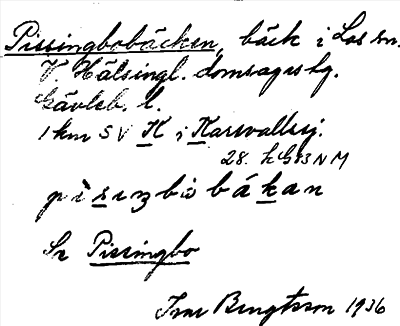 Pissingbobäcken, bäck i Los sn.
V. Hälsingl. domsagas hg.
Gävleb. l.
1 km SV K i Karsvallsj.
28. h G13 NM
pìsıŋbω bákan
Se Pissingbo
Ivar Bengtsson 1936